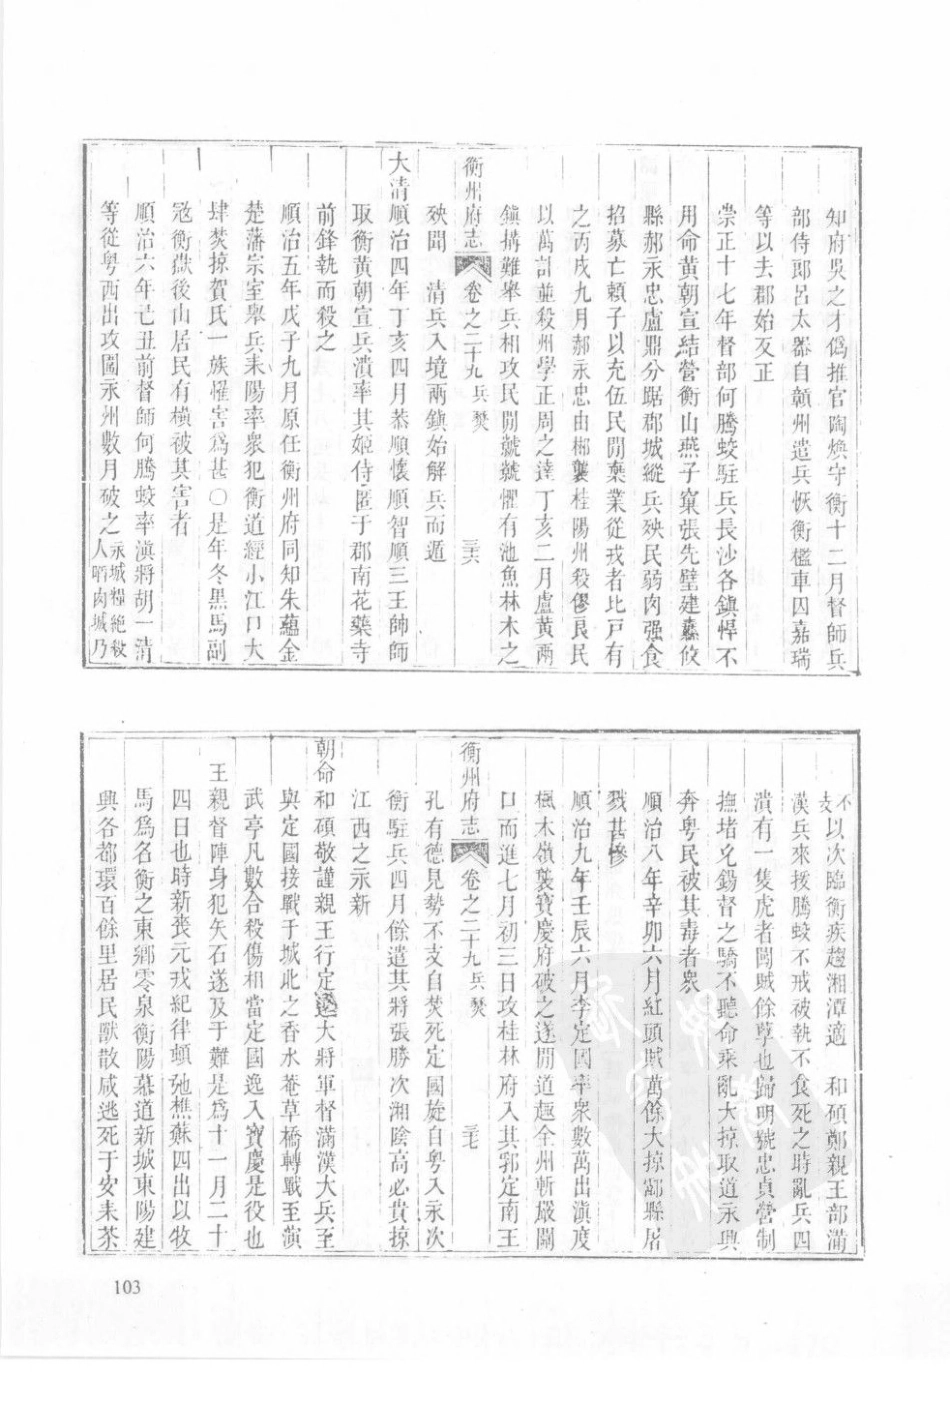 知府吳之才僞推官陶煥守衡十二月督師兵
部侍郎呂太器自贛州遣兵恢衡檻車囚嘉瑞
等以去郡始反正
崇正十七年督部何騰蛟駐兵長沙各鎮悍不
用命黃朝宣結營衡山燕子窠張先璧建纛攸
縣郝永忠盧鼎分踞郡城縱兵殃民弱肉强食
招募亡賴子以充伍民閒棄業從戎者比戸有
之丙戌九月郝永忠由郴襲桂陽州殺僇良民
以萬計並殺州學正周之達丁亥二月盧黃兩
鎮搆難舉兵相攻民閒兢兢懼有池魚林木之
殃聞 清兵入境兩鎮始解兵而遁
衡州府志 卷之二十九 兵燹 三六
大清順治四年丁亥四月恭順懷順智順三王帥師
取衡黃朝宣兵潰率其姬侍匿于郡南花藥寺
前鋒執而殺之
順治五年戊子九月原任衡州府同知朱蘊金
楚藩宗室舉兵耒陽率衆犯衡道經小江口大
肆焚掠賀氏一族罹害爲甚○是年冬黑馬副
寇衡嶽後山居民有橫被其害者
順治六年己丑前督師何騰蛟率滇將胡一清
等從粵西出攻圍永州數月破之永城糧絕殺人啗肉城乃
不支以次臨衡疾趨湘潭適 和碩鄭親王部滿
漢兵來援騰蛟不戒被執不食死之時亂兵四
潰有一隻虎者闖賊餘孽也歸明號忠貞營制
撫堵允錫督之驕不聽命乘亂大掠取道永興
奔粵民被其毒者衆
順治八年辛卯六月紅頭賊萬餘大掠酃縣屠
戮甚慘
順治九年壬辰六月李定國率衆數萬出滇度
楓木嶺襲寶慶府破之遂閒道趨全州斬嚴關
口而進七月初三日攻桂林府入其郛定南王
孔有德見勢不支自焚死定國旋自粵入永次
衡州府志 卷之二十九 兵燹 三七
衡駐兵四月餘遣其將張勝次湘陰高必貴掠
江西之永新
朝命和碩敬謹親王行定遠大將軍督滿漢大兵至
與定國接戰于城北之香水菴草橋轉戰至演
武亭凡數合殺傷相當定國逸入寶慶是役也
王親督陣身犯矢石遂及于難是爲十一月二十
四日也時新喪元戎紀律頓弛樵蘇四出以牧
馬爲名衡之東鄉零泉衡陽慕道新城東陽建
興各都環百餘里居民獸散咸逃死于安耒茶
103